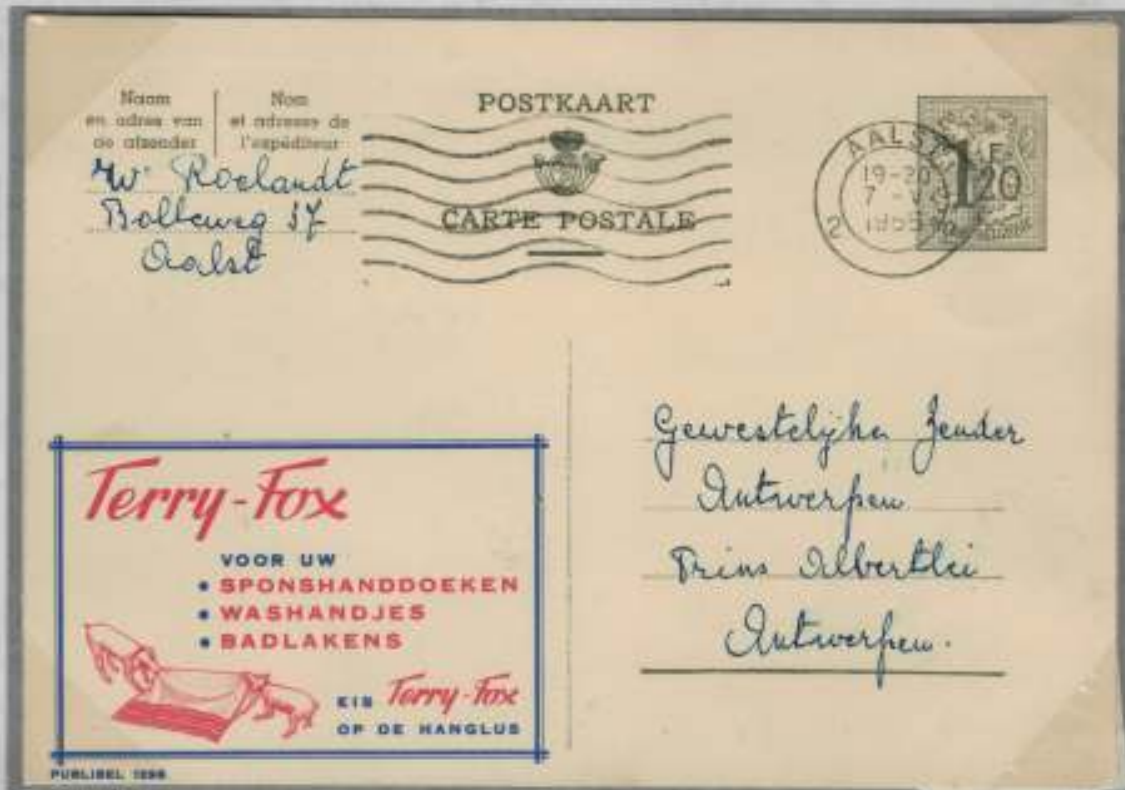 Naam
en adres van
de afzender
Nom
et adresse de
l'expéditeur
Roelandt
Aalst
POSTKAART
CARTE POSTALE
AALST
19-20
7
2
1F20
Gewestelijke Zender
Antwerpen
Prins Albertlei
Antwerpen.
Terry-Fox
VOOR UW
• SPONSHANDDOEKEN
• WASHANDJES
• BADLAKENS
EIS Terry-Fox
OP DE HANGLUS
PUBLIBEL